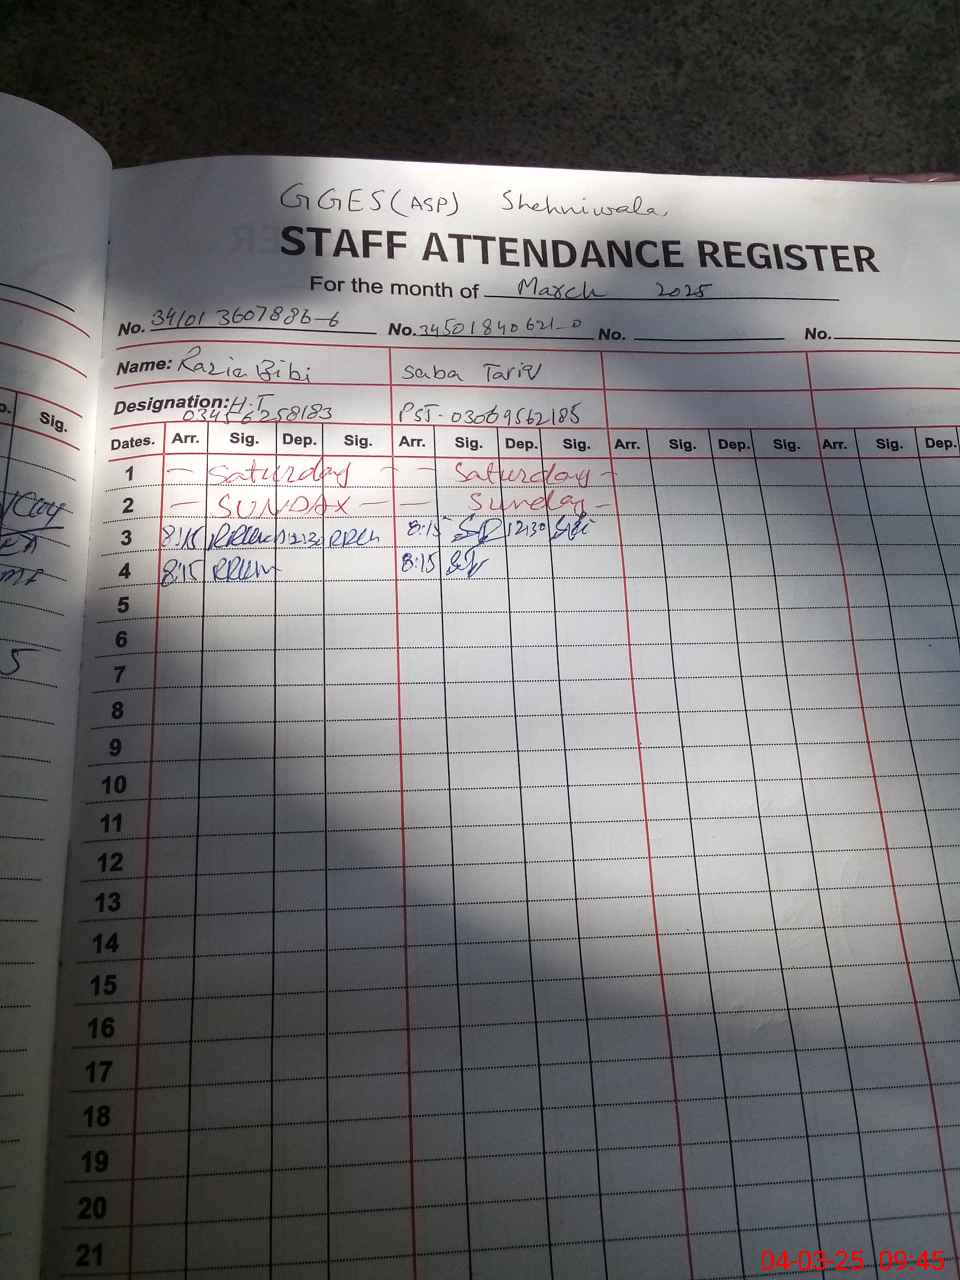 GGES (ASP) Shehniwala
STAFF ATTENDANCE REGISTER
For the month of March 2025
No. 34101 3607886-6 No. 34501840621-0 No. No.
Name: Razia Bibi Saba Tariq
Designation: H.T PST - 03069562185
03456258183
Sig.
Dates. Arr. Sig. Dep. Sig. Arr. Sig. Dep. Sig. Arr. Sig. Dep. Sig. Arr. Sig. Dep.
1 - Saturday - - Saturday -
2 - SUNDAY - - Sunday -
3 8:15 12:30 8:15 12:30
4 8:15 8:15
5
6
7
8
9
10
11
12
13
14
15
16
17
18
19
20
21
04-03-25 09:45